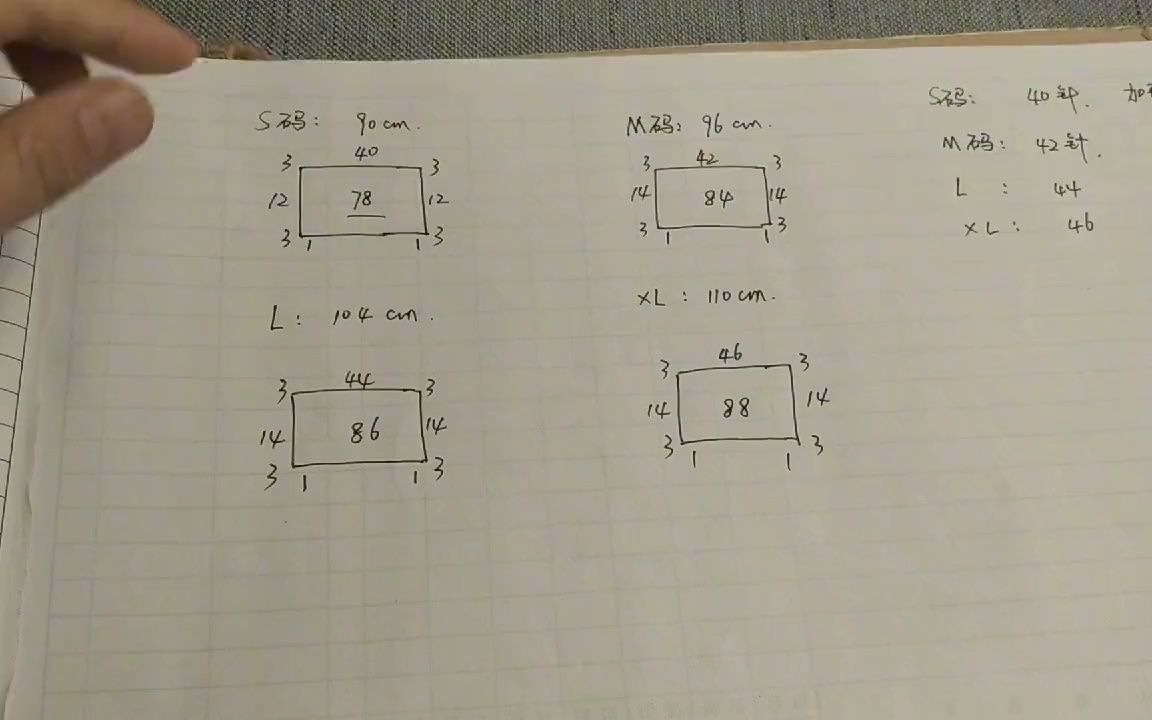 S码: 90cm.
3 40 3
12 78 12
3 1 1 3
M码: 96cm.
3 42 3
14 84 14
3 1 1 3
S码: 40针. 加
M码: 42针.
L : 44
XL: 46
L: 104cm.
3 44 3
14 86 14
3 1 1 3
XL: 110cm.
3 46 3
14 88 14
3 1 1 3